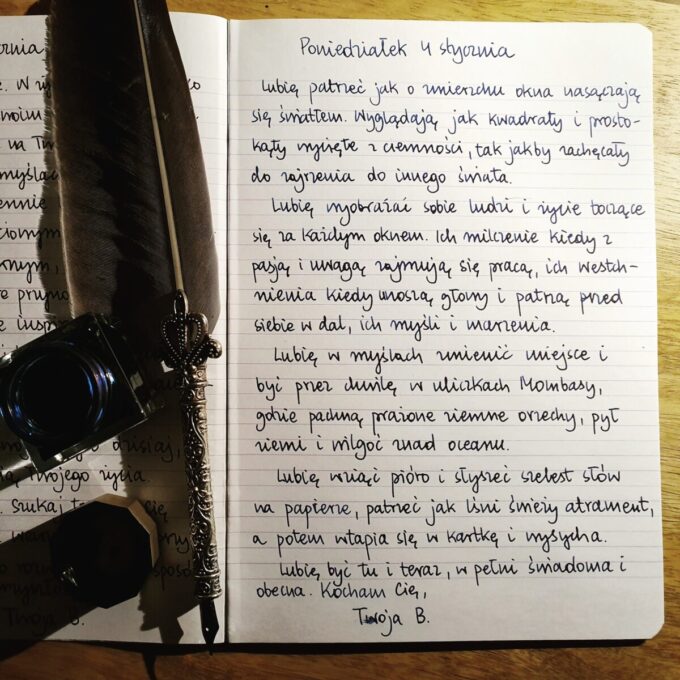 rnia
noim
na Tw
myślac
ennie
cionym
rnym,
re przyno
e inspir
dzisiaj,
Twojego życia.
szukaj
Twoja B.
Poniedziałek 4 stycznia
Lubię patrzeć jak o zmierzchu okna nasączają
się światłem. Wyglądają jak kwadraty i prosto-
kąty wycięte z ciemności, tak jakby zachęcały
do zajrzenia do innego świata.
Lubię wyobrażać sobie ludzi i życie toczące
się za każdym oknem. Ich milczenie kiedy z
pasją i uwagą zajmują się pracą, ich westch-
nienia kiedy unoszą głowy i patrzą przed
siebie w dal, ich myśli i marzenia.
Lubię w myślach zmienić miejsce i
być przez chwilę w uliczkach Mombasy,
gdzie pachną prażone ziemne orzechy, pył
ziemi i wilgoć znad oceanu.
Lubię wziąć pióro i słyszeć szelest słów
na papierze, patrzeć jak lśni świeży atrament,
a potem wtapia się w kartkę i wysycha.
Lubię być tu i teraz, w pełni świadoma i
obecna. Kocham Cię,
Twoja B.